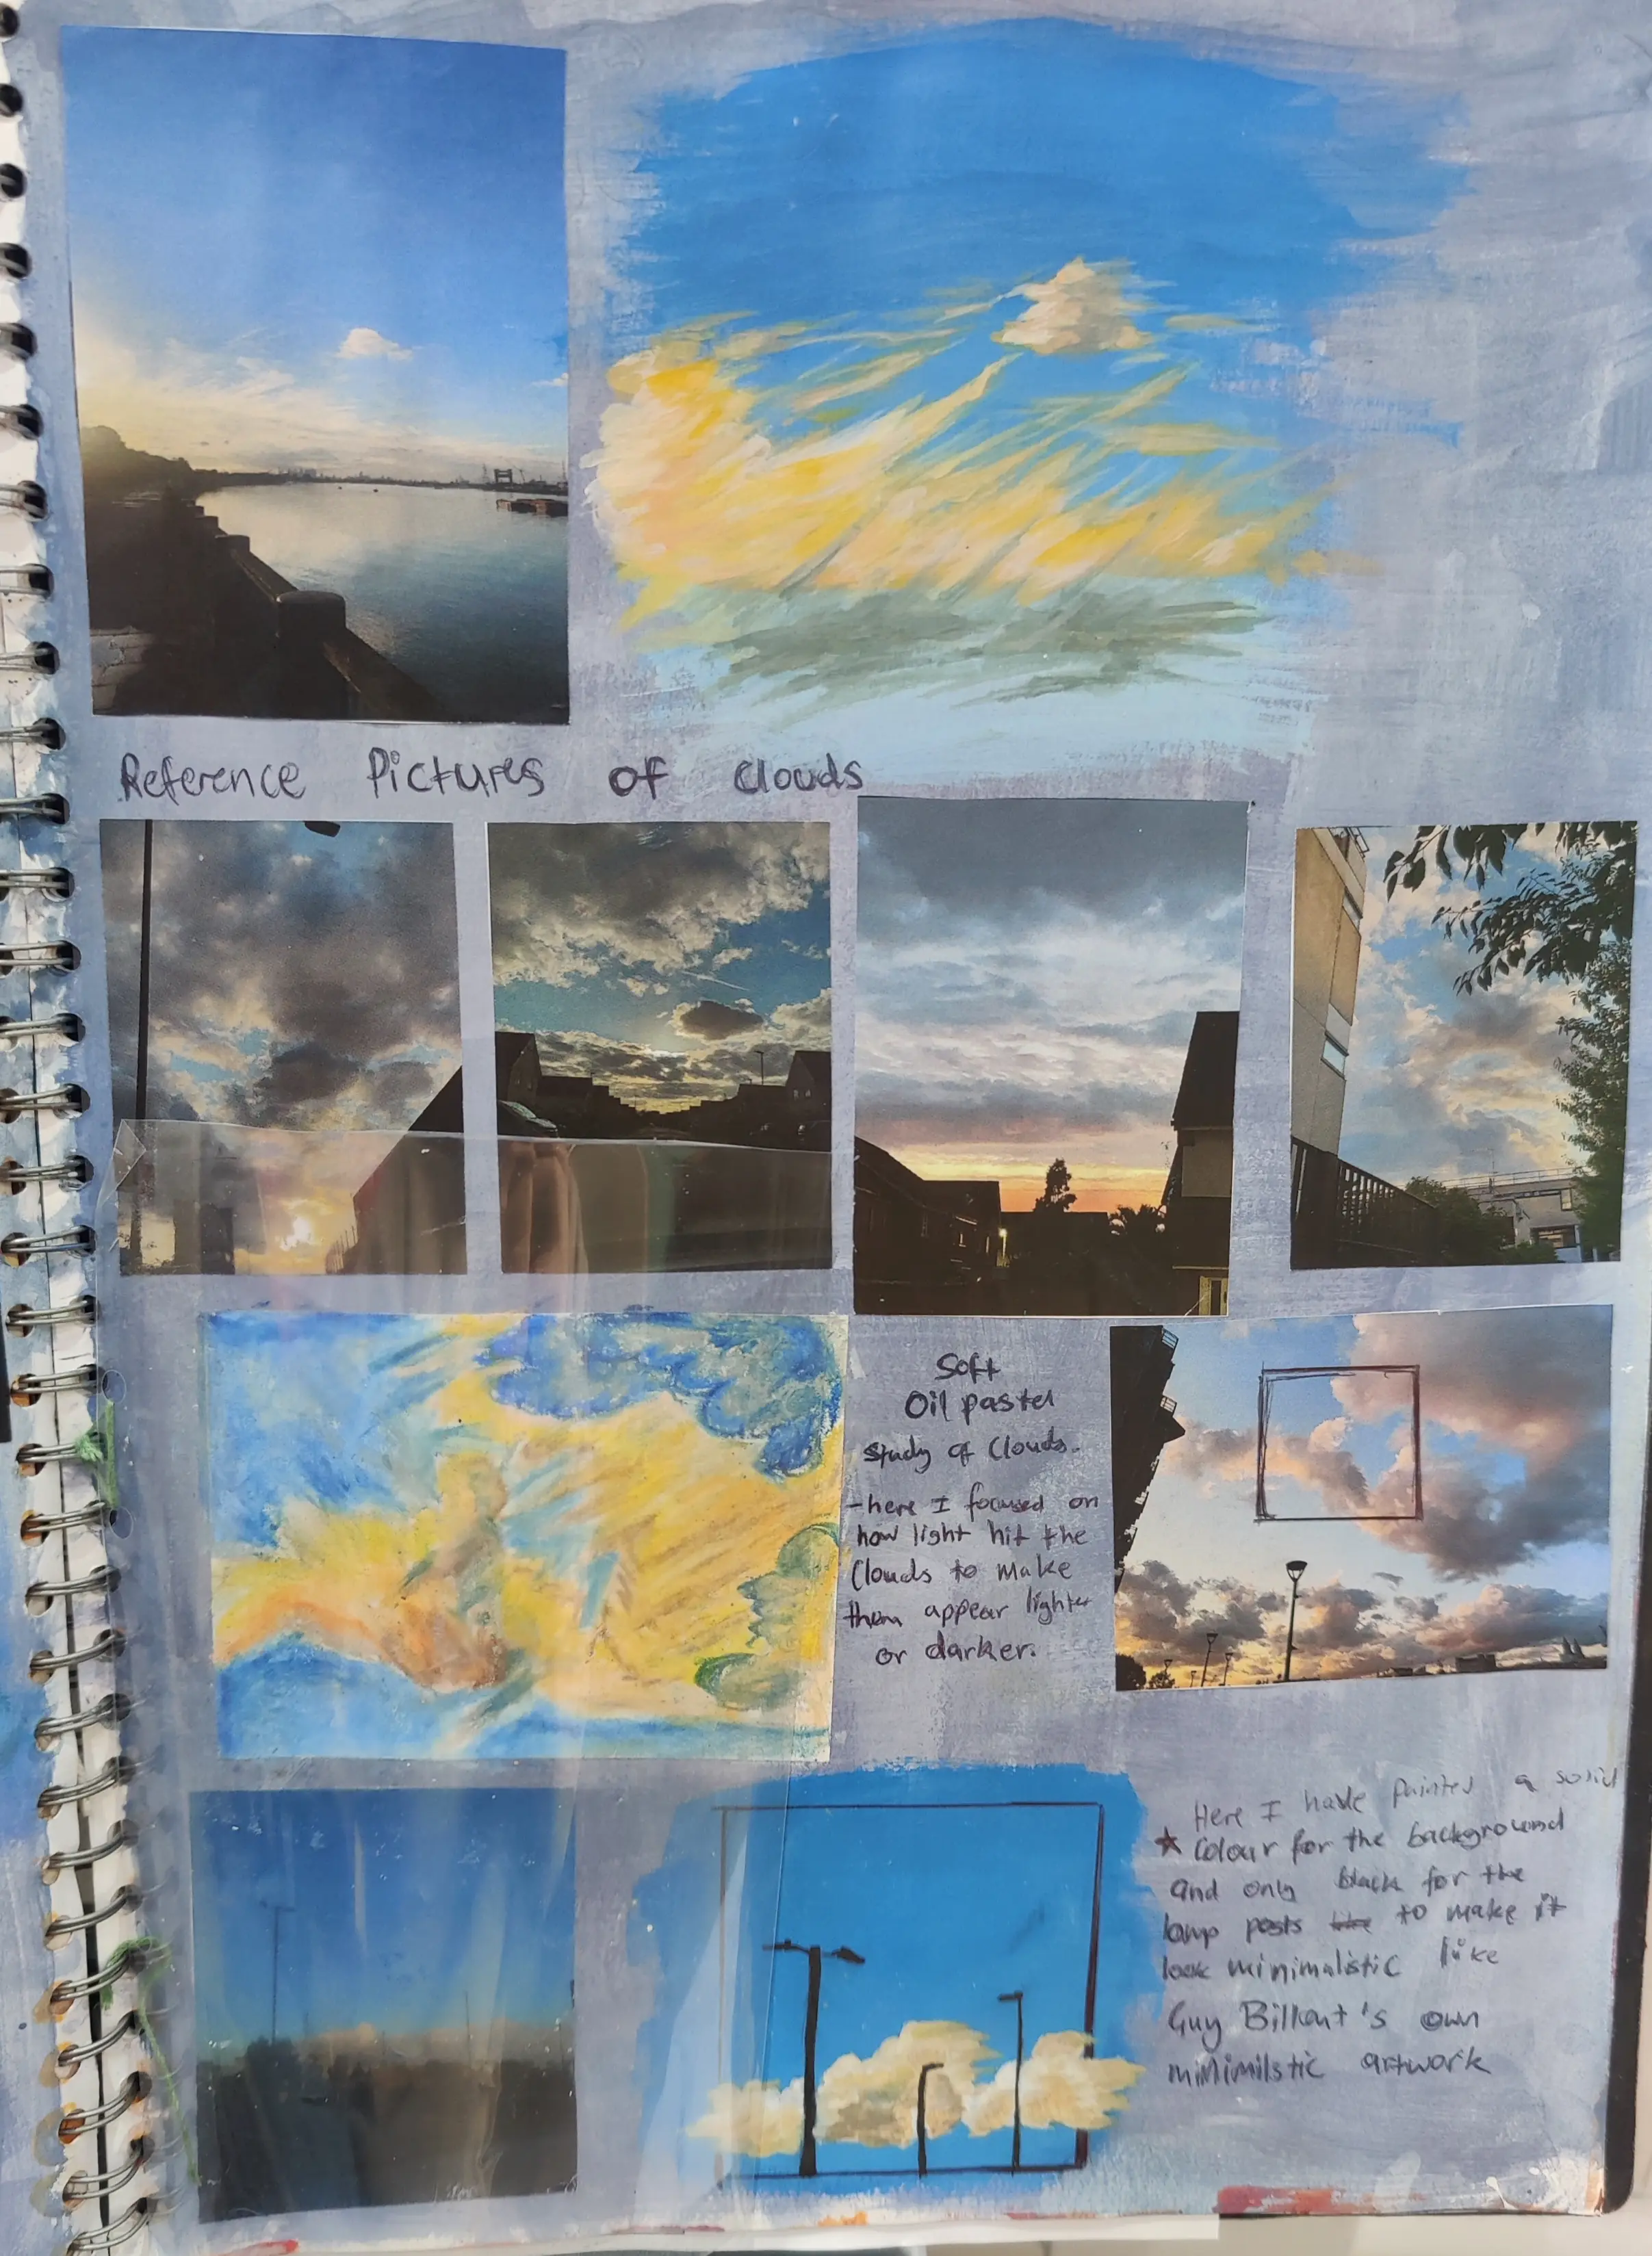 Reference Pictures of clouds
Soft
Oil pastel
study of Clouds.
-here I focused on
how light hit the
Clouds to make
them appear lighter
or darker.
Here I have Painted a solid
★ Colour for the background
and only black for the
lamp posts to make it
look minimalistic like
Guy Billout's own
minimilstic artwork